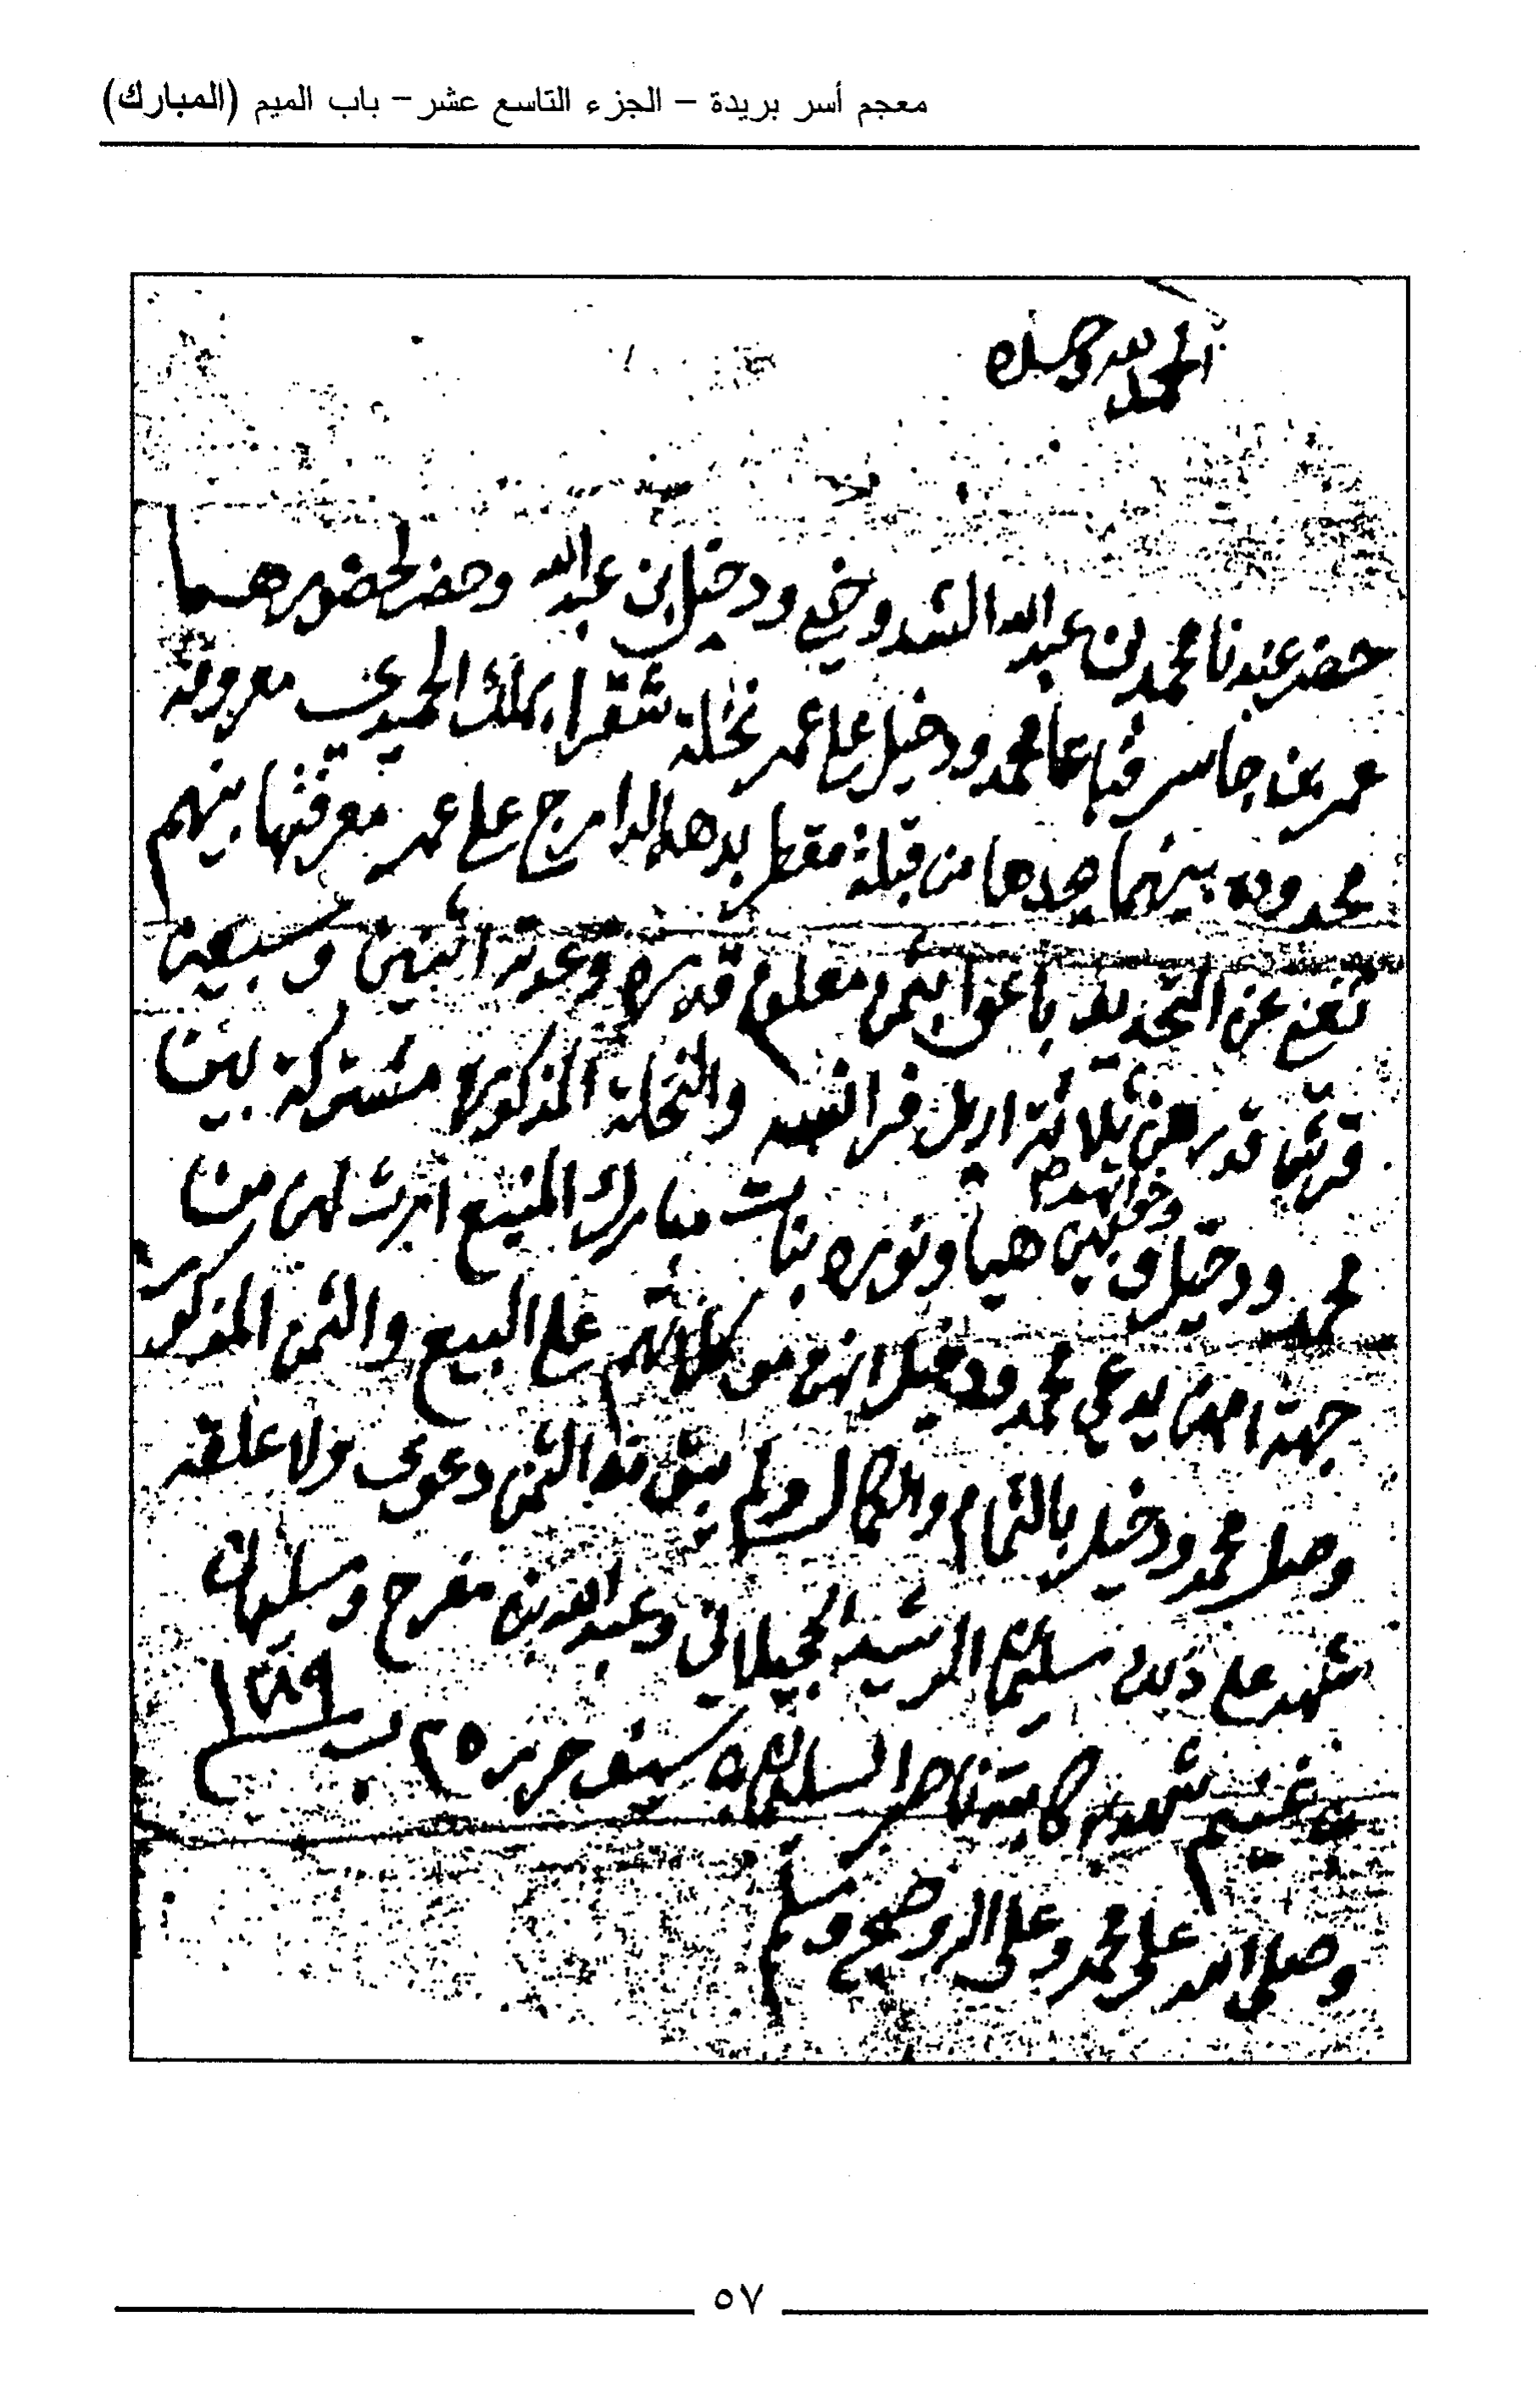 معجم أسر بريدة – الجزء التاسع عشر – باب الميم (المبارك)
الحمد لله وحده
حضر عندنا محمد بن عبدالله الشدوخي ودخيل ابن عبدالله وحضر لحضورهما
عمر بن جاسر فباعا محمد ودخيل على عمر نخلة شقرا بملك الحميدي معروفة
محدوده بينهما يحدها من قبلة الدارج على عمر معرفتها بينهم
تغني عن التحديد باعوا بثمن معلوم قدره وعدته اثنين وسبعين
قرش قدرهن ثلاثة اريل فرانسه والنخلة المذكوره مشتركة بين
محمد ودخيل وخواتهم
وبين هيا ونوره بنات مبارك المنيع ارث لهن من
جهة امهن يدعي محمد ودخيل انهم على البيع والثمن المذكور
وصل محمد ودخيل بالتمام والكمال ولم يبق الثمن دعوى ولا علقه
شهد على ذلك سليمان الرشيد الحجيلاني وعبدالله بن مفرج وسليمان
بن غنيم شهد به كاتبه ناصر السليمان بن سيف حرر ٢٥ ١٢٨٩
وصلى الله على محمد وعلى اله وصحبه وسلم
٥٧